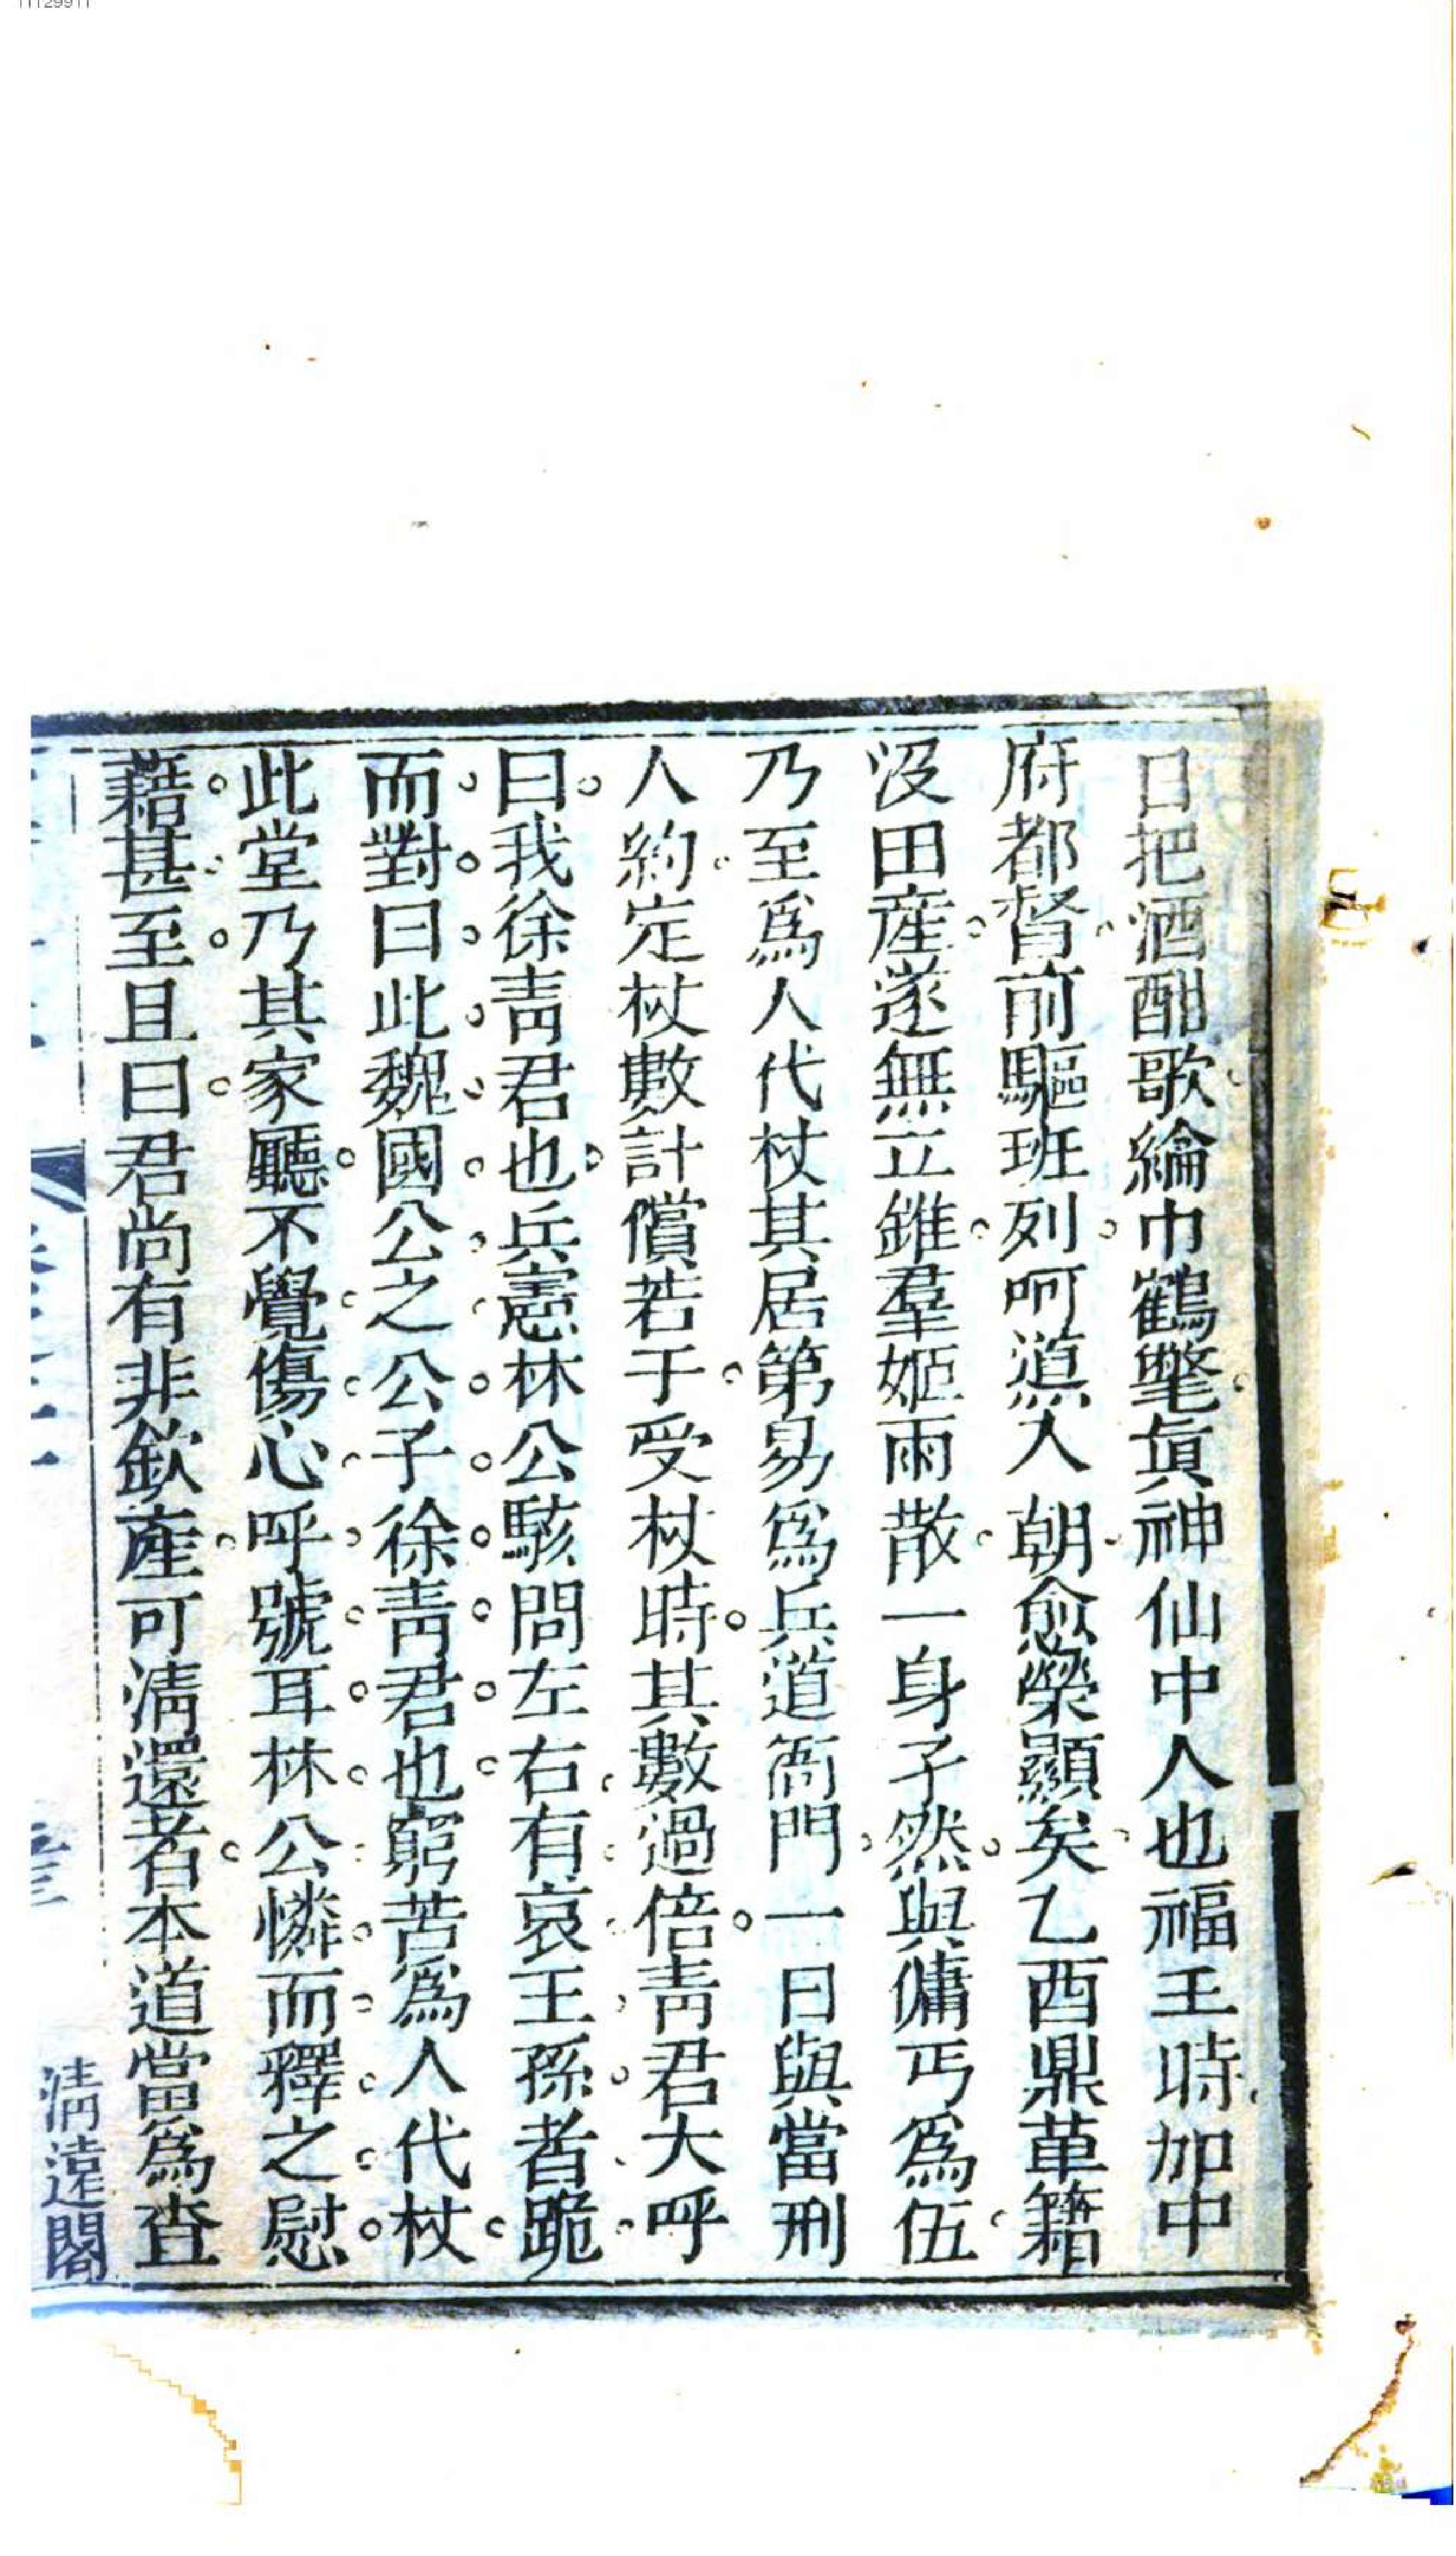 日把酒酣歌綸巾鶴氅眞神仙中人也福王時加中
府都督前驅班列呵導入朝愈榮顯矣乙酉鼎革籍
沒田產遂無立錐羣姬雨散一身孑然與傭丐爲伍
乃至爲人代杖其居第易爲兵道衙門一日與當刑
人約定杖數計償若干受杖時其數過倍青君大呼
曰我徐青君也兵憲林公駭問左右有哀王孫者跪
而對曰此魏國公之公子徐青君也窮苦爲人代杖
此堂乃其家廳不覺傷心呼號耳林公憐而釋之慰
藉甚至且曰君尚有非欽產可清還者本道當爲查
清遠閣